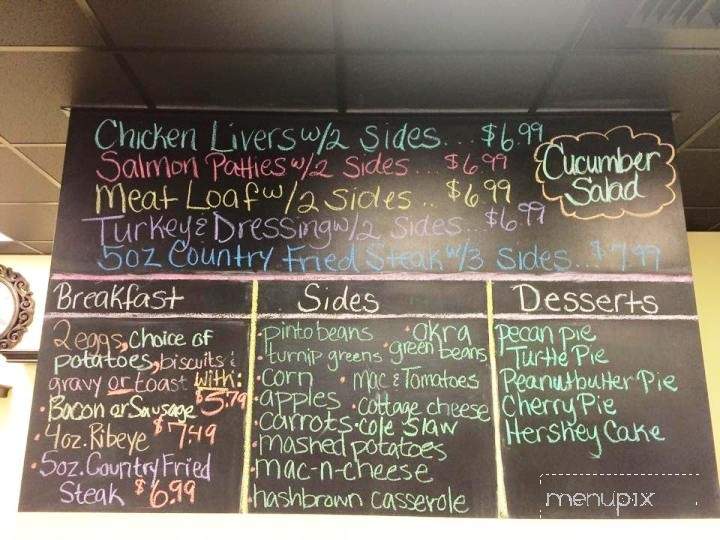 Chicken Livers w/2 Sides... $6.99
Salmon Patties w/2 Sides... $6.99
Meat Loaf w/2 sides.. $6.99
Turkey & Dressing w/2 sides... $6.99
5oz Country Fried Steak w/3 sides... $7.99
Cucumber
Salad
Breakfast
2 eggs, choice of
potatoes, biscuits &
gravy or toast with:
• Bacon or Sausage $5.79
• 4oz. Ribeye $7.49
• 5oz. Country Fried
Steak $6.99
Sides
• pinto beans • Okra
• turnip greens • green beans
• corn • Mac & Tomatoes
• apples • cottage cheese
• carrots • cole slaw
• mashed potatoes
• mac-n-cheese
• hashbrown casserole
Desserts
pecan pie
Turtle Pie
Peanutbutter Pie
Cherry Pie
Hershey Cake
menupix